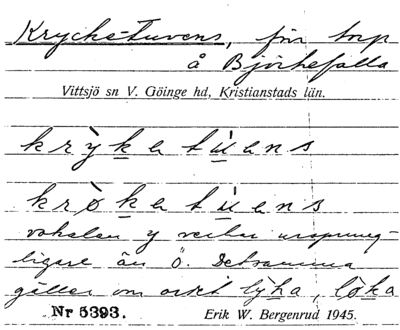 Krycke-Tuvens, förr torp
å Björkefalla
Vittsjö sn V. Göinge hd, Kristianstads län.
krỳkatùans
krø̀katùans
vokalen y verkar ursprung-
ligare än ö. Detsamma
gäller om ordet lỳka, lø̀ka
Nr 5393. Erik W. Bergenrud 1945.